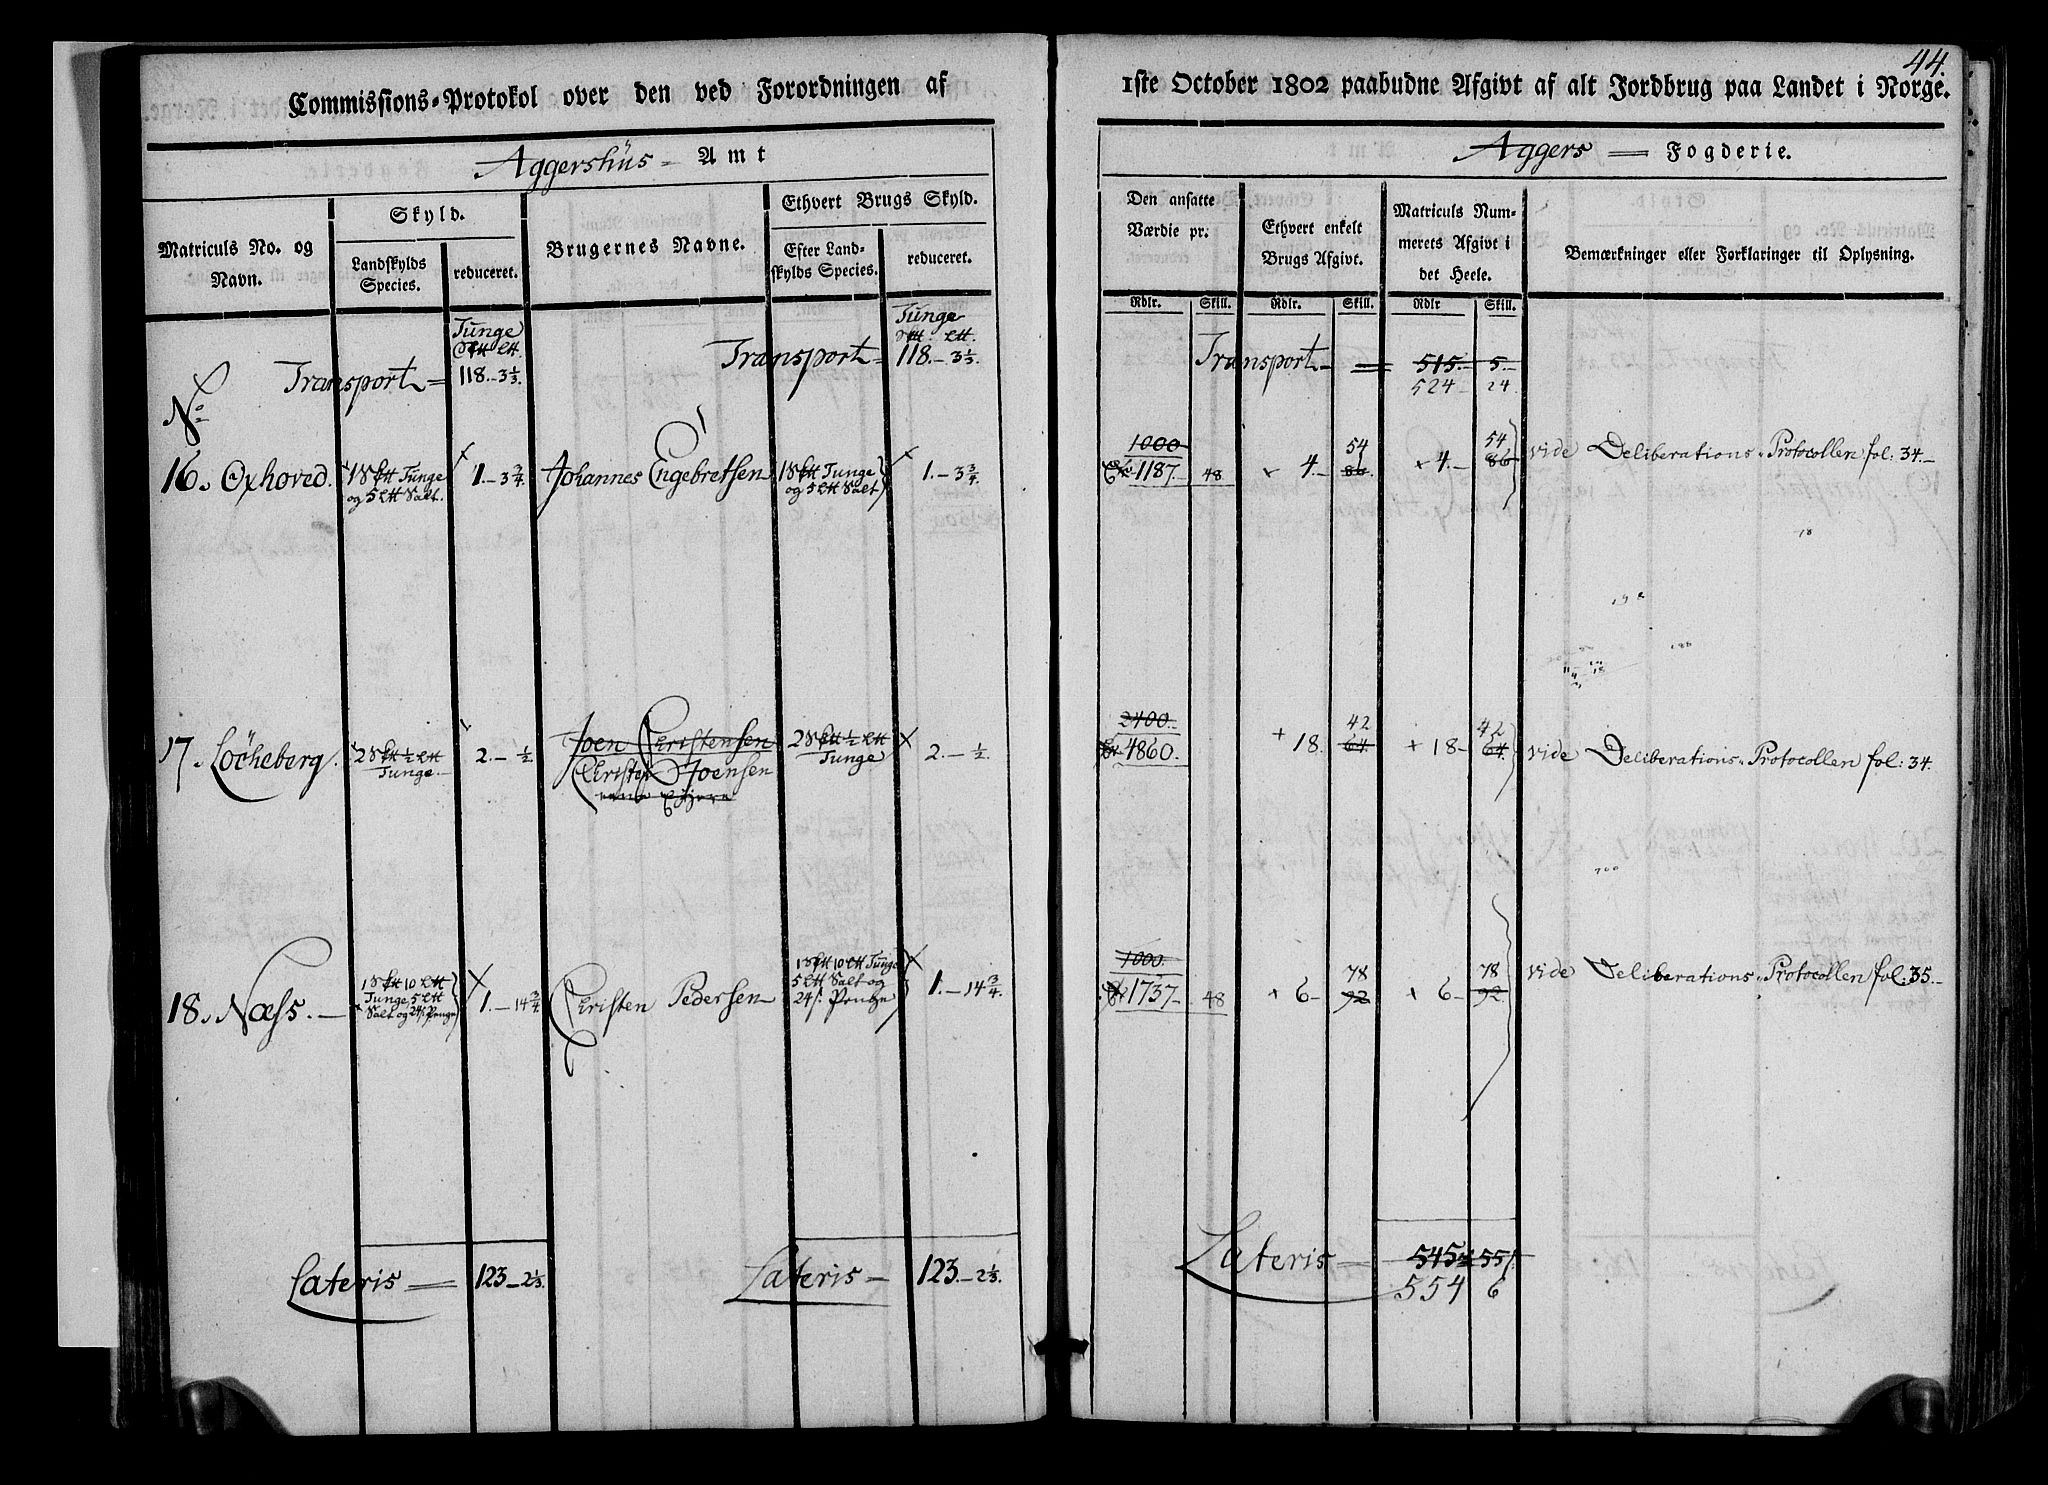 44.
Commissions-Protokol over den ved Forordningen af 1ste October 1802 paabudne Afgivt af alt Jordbrug paa Landet i Norge.
Aggershüs Amt
Aggers Fogderie.
Matriculs No. og Navn.
Skyld.
Landskylds Species.
reduceret.
Brugernes Navne.
Ethvert Brugs Skyld.
Efter Landskylds Species.
reduceret.
Den ansatte Værdie pr:
Ethvert enkelt Brugs Afgivt.
Matriculs Nummerets Afgivt i det Heele.
Bemærkninger eller Forklaringer til Oplysning.
Rdlr. Skill. Rdlr. Skill. Rdlr Skill.
Tünge Tünge
Transport 118.-3 1/3. Transport 118.-3 1/3. Transport 515. 5.
524 24
No
1000 54 54
16. Oxhoved. 1 S℔ Tünge og 5 L℔ Salt. 1.-3 3/4 Johannes Engebretsen 1 S℔ Tunge og 5 L℔ Salt 1.-3 3/4. 1187. 48 4.- 86. 4.- 86 vide Deliberations Protocollen fol: 34.
2400. 42 42
17. Löcheberg. 2 S℔ 1/2 L℔ Tunge 2.-1/2 Joen Christensen 2 S℔ 1/2 L℔ Tunge 2.-1/2. 4860. 18. 64 18- 64. vide Deliberations Protocollen fol: 34.
Christen Joensen
1000. 78 78
18. Næss. 1 S℔ 10 L℔ Tunge, 5 L℔ Salt og 24 /: Penge 1.-14 3/4 Christen Pedersen 1 S℔ 10 L℔ Tunge 5 L℔ Salt og 24 /: Penge 1.-14 3/4. 1737 48 6- 92 6- 92. vide Deliberations Protocollen fol: 35.
Lateris 123-2 1/3. Lateris 123.-2 1/3. Lateris 545 55
554 6